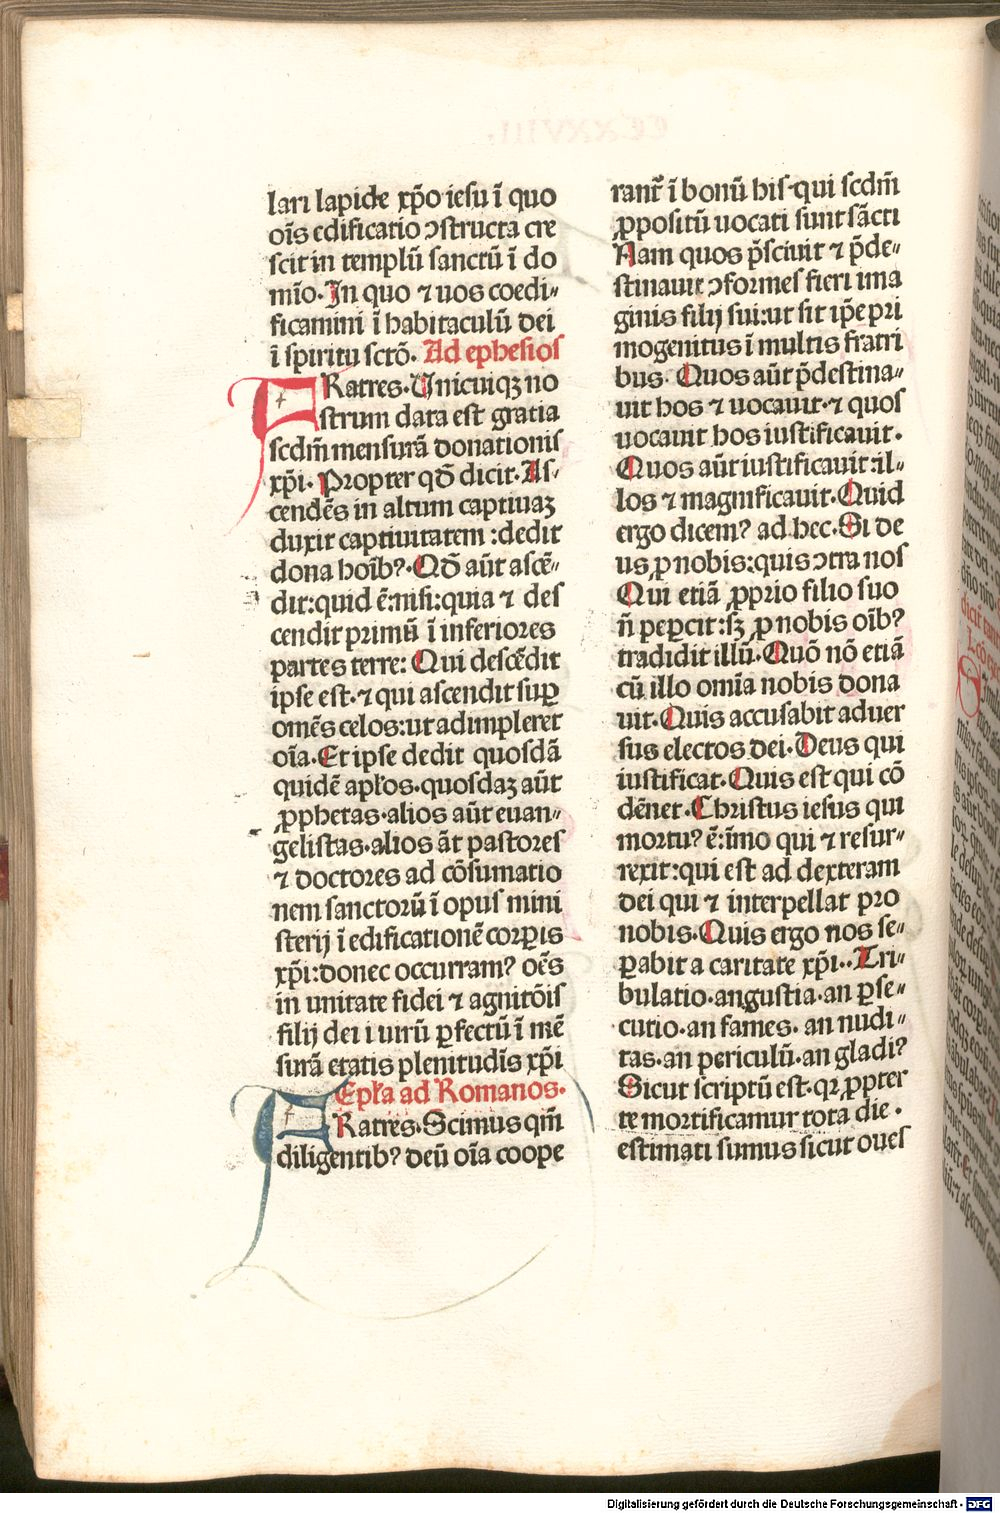 lari lapide xp̄o iesu ī quo
oīs edificatio ꝯstructa cre
scit in templū sanctū ī do
mīo. In quo ⁊ uos coedi„
ficamini ī habitaculū dei
ī spiritu sctō. Ad ephesios
FRatres. Unicuiqꝫ no
strum data est gratia
scdm̄ mensurā donationis
xp̄i. Propter qđ dicit. As„
cendēs in altum captiuaꝫ
duxit captiuitatem: dedit
dona hoīb?. Qđ aūt ascē„
dit: quid ē: nisi: quia ⁊ des
cendit primū ī inferiores
partes terre: Qui descēdit
ipse est. ⁊ qui ascendit suꝑ
omēs celos: ut adimpleret
oīa. Et ipse dedit quosdā
quidē apłos. quosdaꝫ aūt
ꝓphetas. alios aūt euan„
gelistas. alios āt pastores
⁊ doctores ad cōsumatio
nem sanctorū ī opus mini
sterij ī edificationē corꝑis
xp̄i: donec occurram? oēs
in unitate fidei ⁊ agnitōis
filij dei i uirū ꝑfectū ī mē
surā etatis plenitudīs xp̄i
Epła ad Romanos.
FRatres. Scimus qm̄
diligentib? deū oīa coope
rant᷑ ī bonū his qui scdm̄
ꝓpositū uocati sunt sācti
Nam quos p̄sciuit ⁊ p̄de„
stinauit ꝯformes fieri ima
ginis filij sui: ut sit ip̄e pri
mogenitus ī multis fratri
bus. Quos aūt p̄destina„
uit hos ⁊ uocauit. ⁊ quos
uocauit hos iustificauit.
Quos aūt iustificauit: il„
los ⁊ magnificauit. Quid
ergo dicem? ad hec. Si de
us ꝓ nobis: quis ꝯtra nos
Qui etiā ꝓprio filio suo
n̄ peꝑcit: sꝫ ꝓ nobis oīb?
tradidit illū. Quō nō etiā
cū illo omīa nobis dona
uit. Quis accusabit aduer
sus electos dei. Deus qui
iustificat. Quis est qui cō
dēnet. Christus iesus qui
mortu? ē: īmo qui ⁊ resur„
rexit: qui est ad dexteram
dei qui ⁊ interpellat pro
nobis. Quis ergo nos se„
ꝑabit a caritate xp̄i.. Tri„
bulatio. angustia. an ꝑse„
cutio. an fames. an nudi„
tas. an periculū. an gladi?
Sicut scriptū est. qꝛ ꝓpter
te mortificamur tota die.
estimati sumus sicut oues
Digitalisierung gefördert durch die Deutsche Forschungsgemeinschaft - DFG